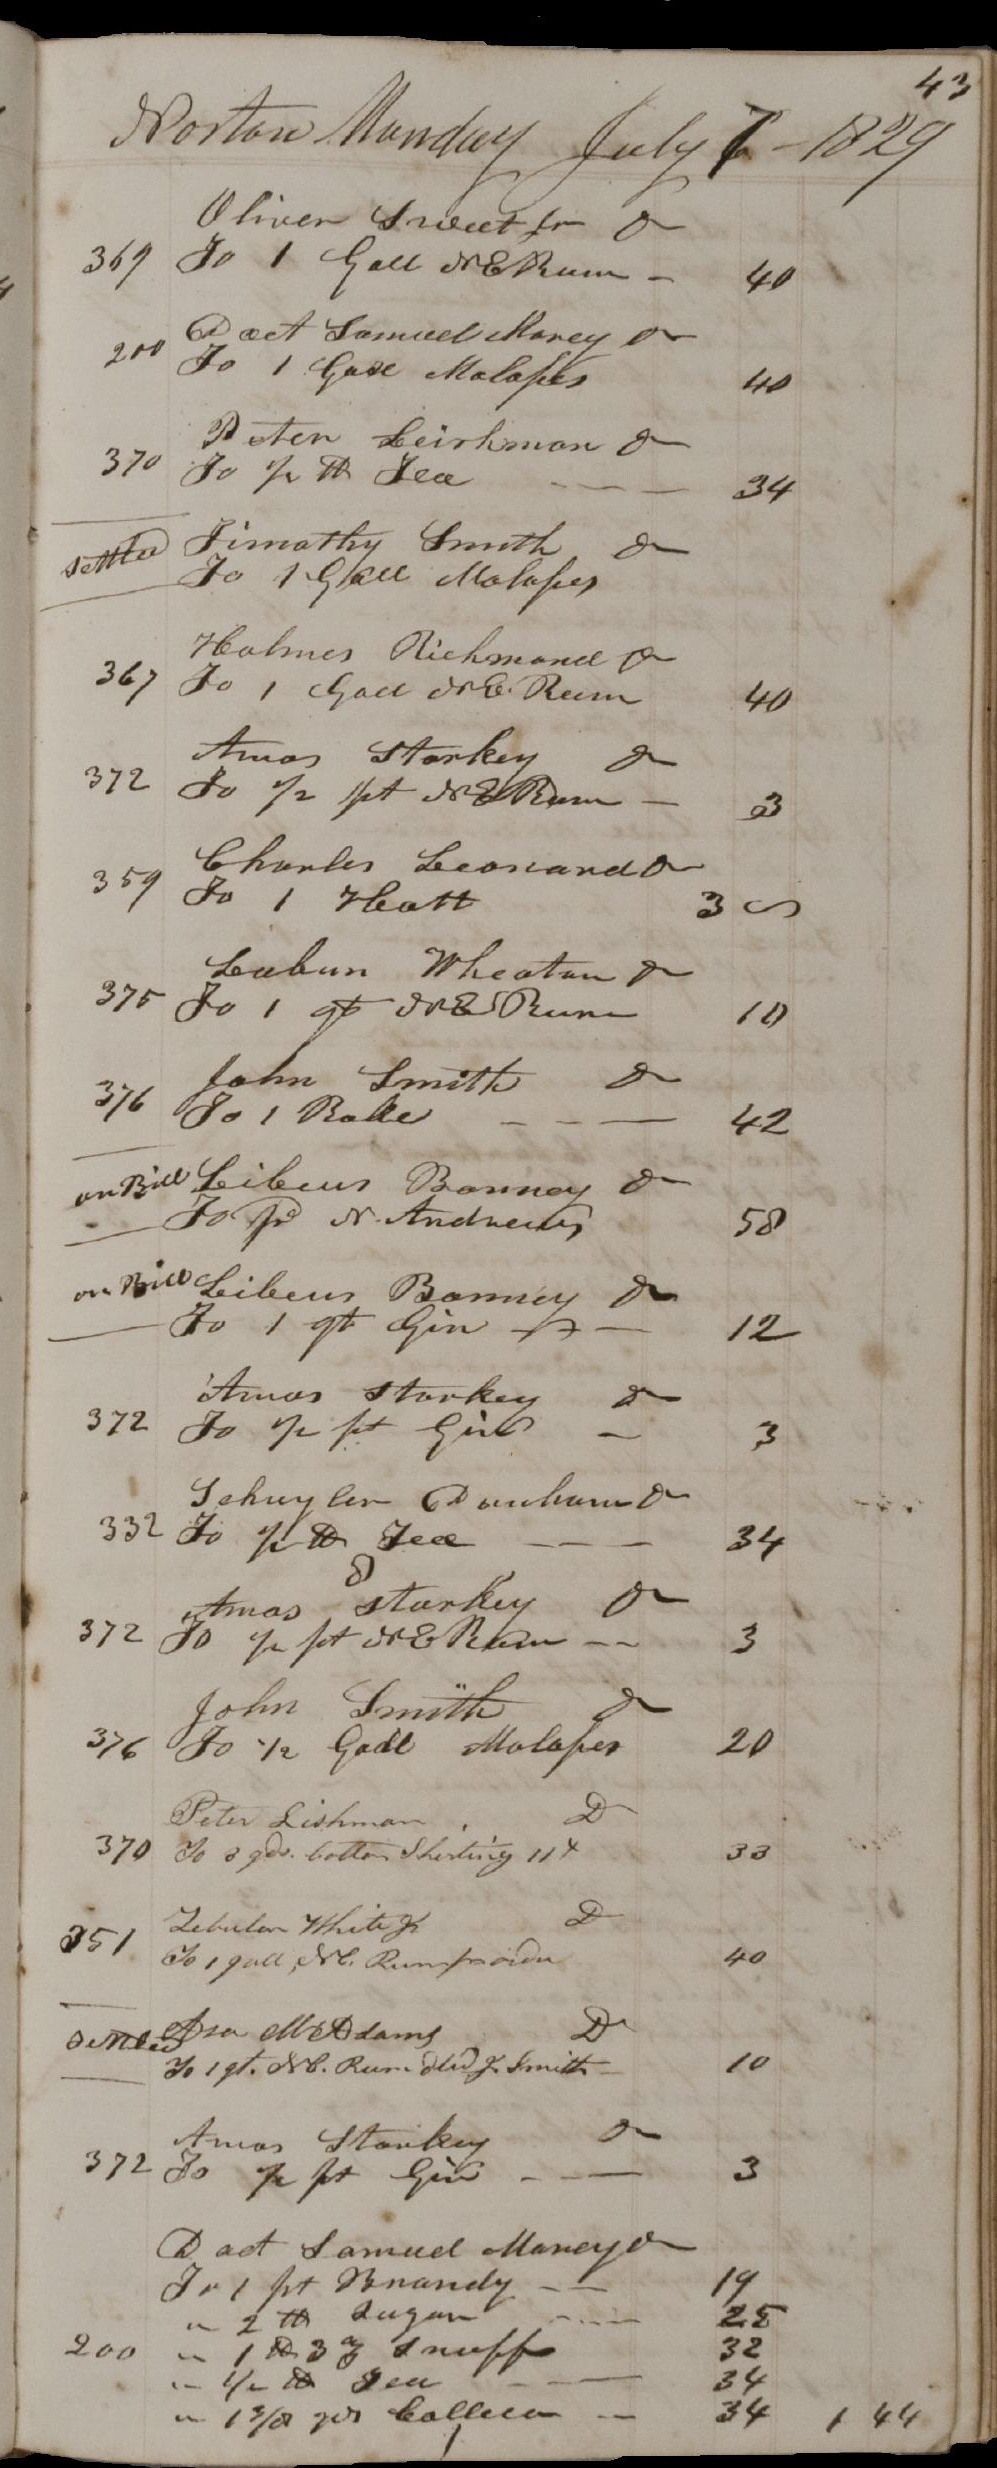 43
Norton Monday July 6 - 1829
Oliver Sweet Jr Dr
369 To 1 Gall N E Rum - 40
Doct Samuel Morey Dr
200 To 1 Gall Molasses 40
Peter Leishman Dr
370 To 1/2 lb Tea - - - 34
Settled Timothy Smith Dr
To 1 Gall Molasses
Holmes Richmond Dr
367 To 1 Gall N E Rum 40
Amos Starkey Dr
372 To 1/2 pt N E Rum - 3
Charles Leonard Dr
359 To 1 Hatt 3
Labun Wheaton Dr
375 To 1 qt N E Rum 10
John Smith Dr
376 To 1 Rake - - - 42
on Bill Libeus Bonney Dr
To pd N. Andrews 58
on Bill Libeus Bonney Dr
To 1 qt Gin - 12
Amos Starkey Dr
372 To 1/2 pt Gin - 3
Schuyler Dunham Dr
332 To 1/2 lb Tea - - - 34
Amos Starkey Dr
372 To 1/2 pt N E Rum - - 3
John Smith Dr
376 To 1/2 Gall Molasses 20
Peter Lishman Dr
370 To 3 yds. Cotton Shirting 11 33
351 Zebulon White Jr Dr
To 1 gall, N E. Rum 40
Settled Asa M Adams Dr
To 1 qt. N E. Rum dld J. Smith - 10
Amos Starkey Dr
372 To 1/2 pt Gin - - - 3
Doct Samuel Morey Dr
To 1 pt Brandy - - 19
" 2 lb Sugar - - - 25
200 " 1 lb 3 oz Snuff 32
" 1/2 lb Tea - - - 34
" 1 3/8 yds Callico - 34 1 44